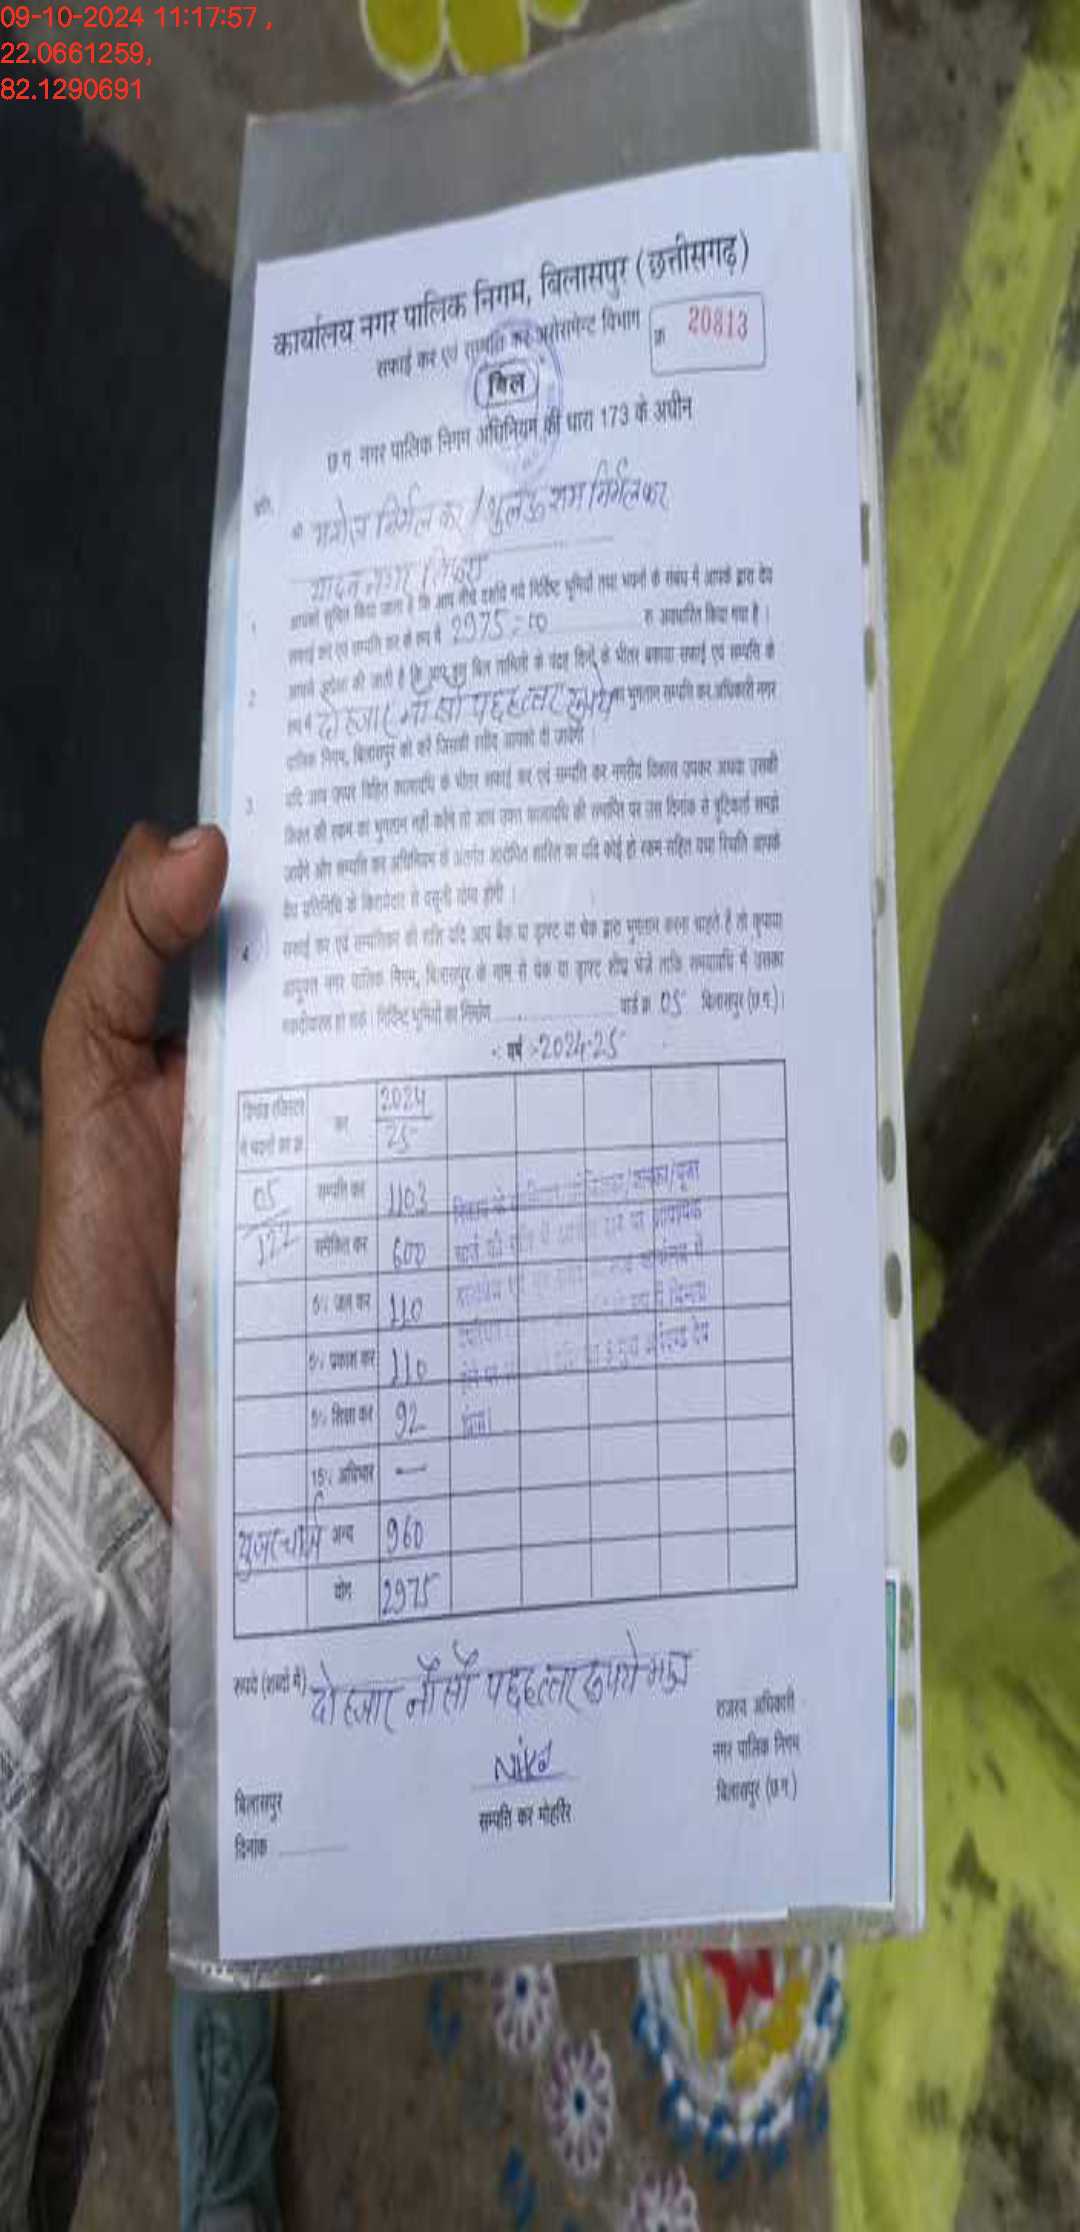 09-10-2024 11:17:57 ,
22.0661259,
82.1290691
कार्यालय नगर पालिक निगम, बिलासपुर (छत्तीसगढ़)
सफाई कर एवं सम्पत्ति कर असेसमेन्ट विभाग
क्र 20813
बिल
छ.ग. नगर पालिक निगम अधिनियम की धारा 173 के अधीन
प्रति,
श्री मनोज निर्मलकर / निर्मलकर
नगर
1 आपको सूचित किया जाता है कि आप नीचे दर्शाये गये निर्दिष्ट भूमियों तथा भवनों के संबंध में आपके द्वारा देय
सफाई कर एवं सम्पत्ति कर के रूप में 2975=00 रु अवधारित किया गया है।
2 आपसे अपेक्षा की जाती है कि आप इस बिल तामिली के पंद्रह दिनों के भीतर बकाया सफाई एवं सम्पत्ति के
रूप में दो हजार नौ सौ पद्दहत्तर रूपये का भुगतान सम्पत्ति कर अधिकारी नगर
पालिक निगम, बिलासपुर को करें जिसकी रसीद आपको दी जायेगी।
3 यदि आप ऊपर विहित कालावधि के भीतर सफाई कर एवं सम्पत्ति कर नगरीय विकास उपकर अथवा उसकी
किश्त की रकम का भुगतान नहीं करेंगे तो आप उक्त कालावधि की समाप्ति पर उस दिनांक से त्रुटिकर्ता समझे
जायेंगे और सम्पत्ति कर अधिनियम के अंतर्गत आरोपित शास्ति का यदि कोई हो रकम सहित यथा स्थिति आपके
वैध प्रतिनिधि के किरायेदार से वसूली योग्य होगी।
4 सफाई कर एवं सम्पत्तिकर की राशि यदि आप बैंक या ड्राफ्ट या चेक द्वारा भुगतान करना चाहते है तो कृपया
आयुक्त नगर पालिक निगम, बिलासपुर के नाम से चेक या ड्राफ्ट शीघ्र भेजें ताकि समयावधि में उसका
नकदीकरण हो सके। निर्दिष्ट भूमियों का निर्माण ............ वार्ड क्र. 05 बिलासपुर (छ.ग.)।
-: वर्ष :- 2024-25
डिमांड रजिस्टर कर 2024
में भवनों का क्र. 25
05 सम्पत्ति कर 1103
समेकित कर 600
6% जल कर 110
5% प्रकाश कर 110
5% शिक्षा कर 92
होगा।
15% अधिभार —
यूजर चार्ज अन्य 960
योग 2975
रूपये (शब्दों में) दो हजार नौ सौ पद्दहत्तर रूपये मात्र
राजस्व अधिकारी
नगर पालिक निगम
बिलासपुर (छ.ग.)
बिलासपुर
सम्पत्ति कर मोहर्रिर
दिनांक ............